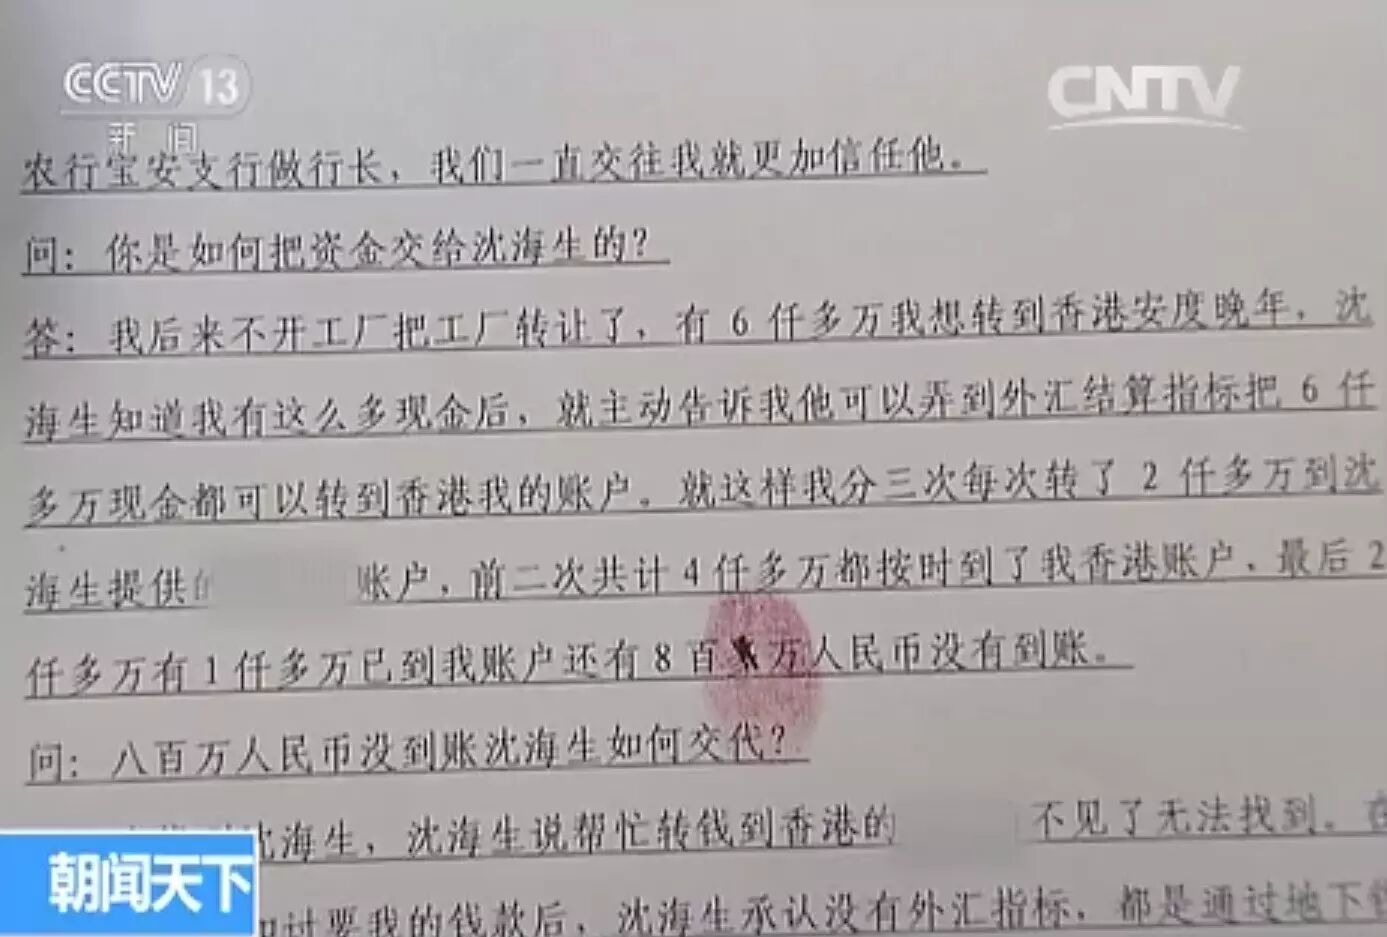 CCTV 13
新闻
CNTV
农行宝安支行做行长，我们一直交往我就更加信任他。
问：你是如何把资金交给沈海生的？
答：我后来不开工厂把工厂转让了，有 6 仟多万我想转到香港安度晚年，沈
海生知道我有这么多现金后，就主动告诉我他可以弄到外汇结算指标把 6 仟
多万现金都可以转到香港我的账户。就这样我分三次每次转了 2 仟多万到沈
海生提供的 账户，前二次共计 4 仟多万都按时到了我香港账户，最后 2
仟多万有 1 仟多万已到我账户还有 8 百 万人民币没有到账。
问：八百万人民币没到账沈海生如何交代？
沈海生，沈海生说帮忙转钱到香港的 不见了无法找到。在
要我的钱款后，沈海生承认没有外汇指标，都是通过地下
朝闻天下